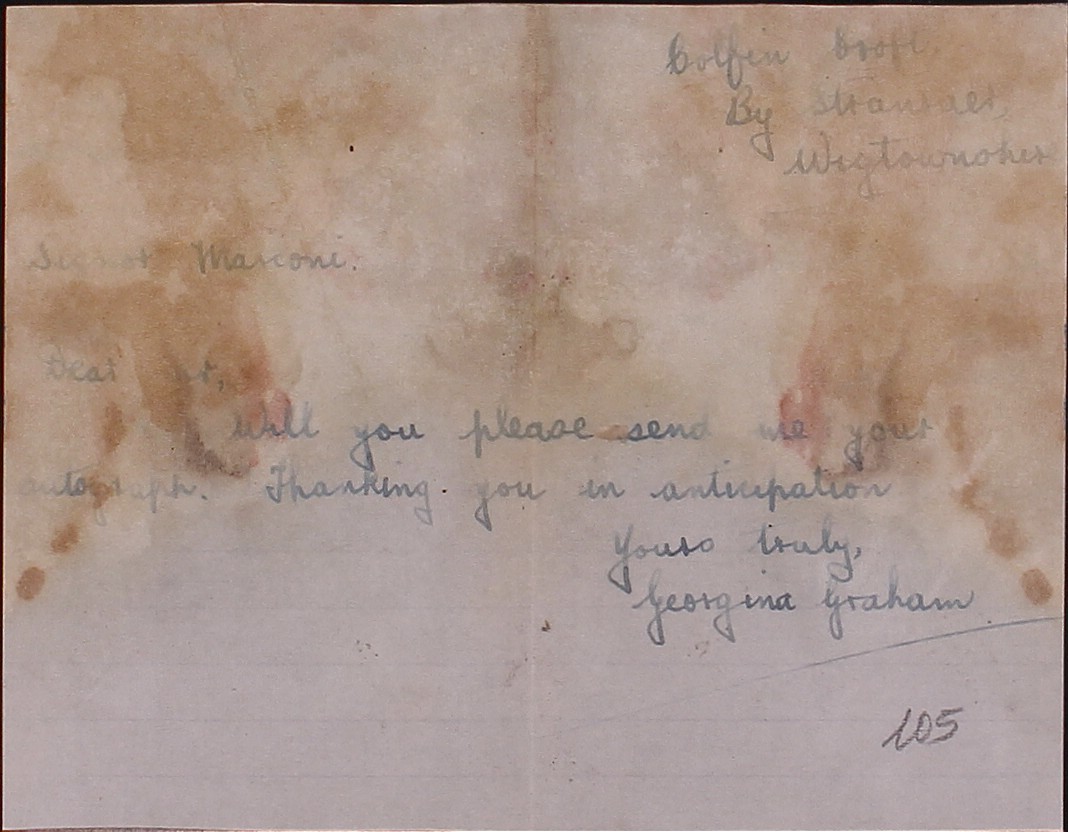 Colfin Croft,
By Stranraer,
Wigtownshire
Signor Marconi.
Dear Sir,
Will you please send me your
autograph. Thanking you in anticipation
Yours truly,
Georgina Graham
105